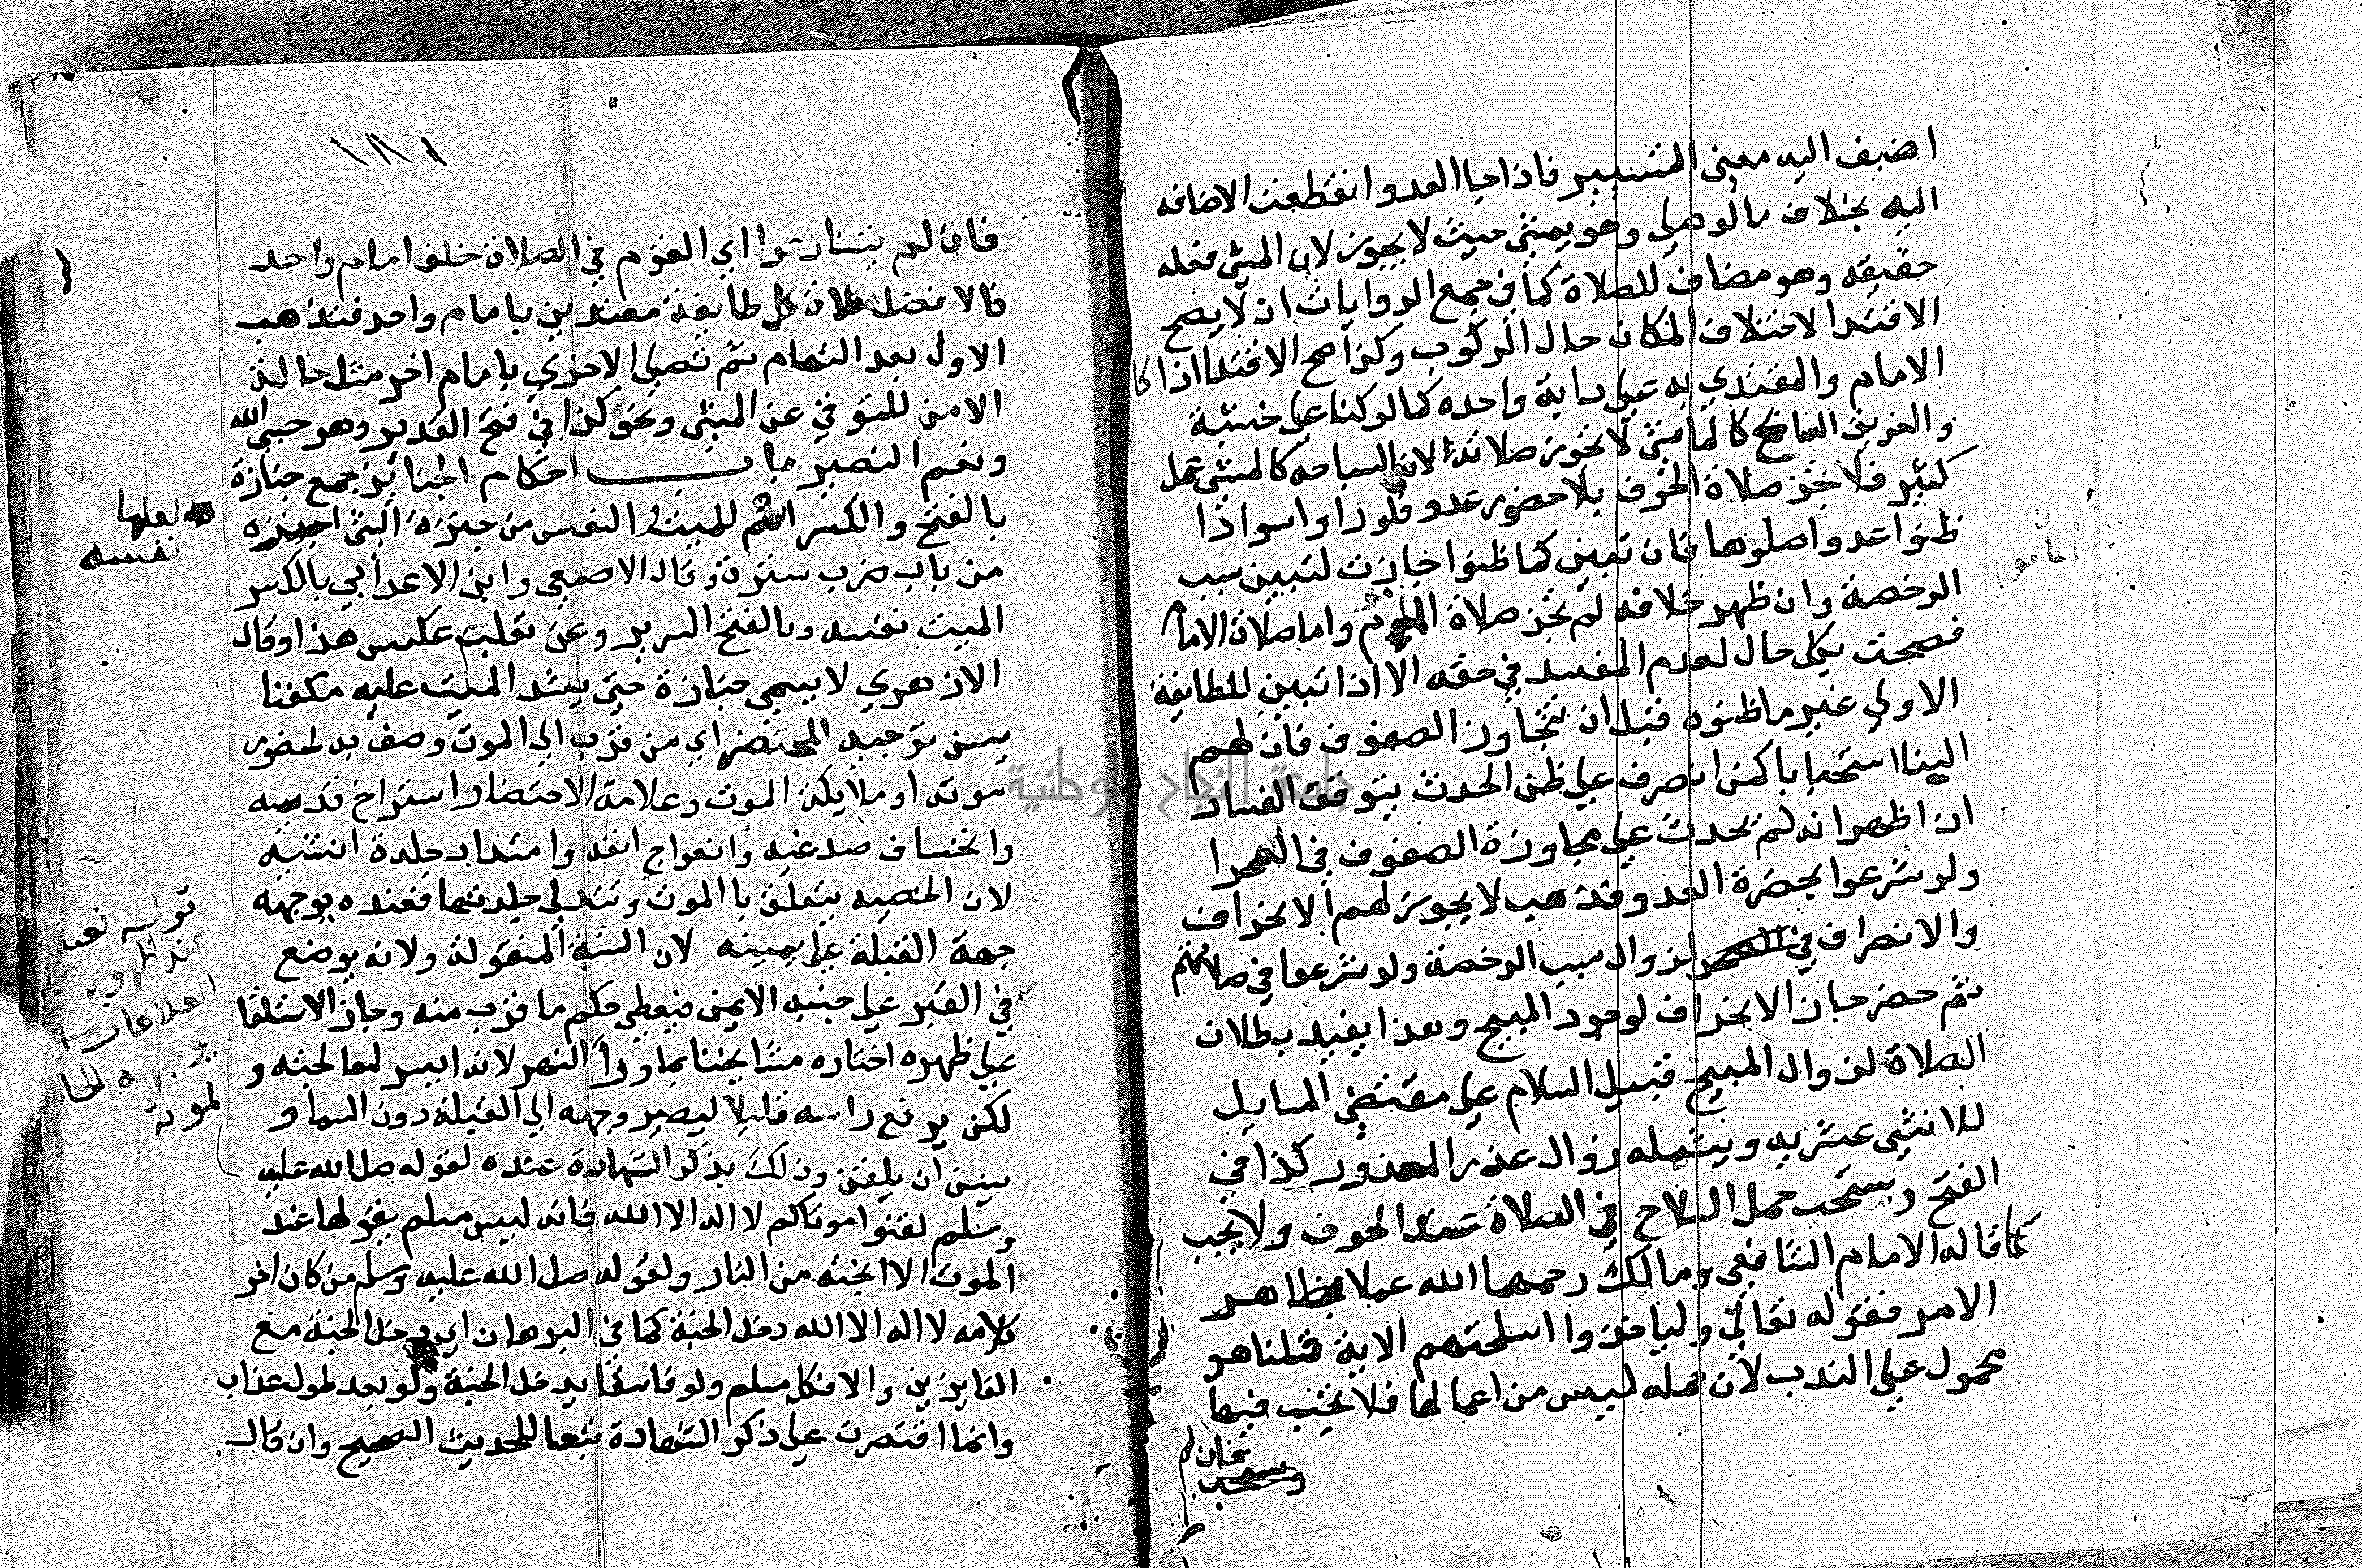 اضيف اليه معني المشي سير فاذا جا العدو انقطعت الاضافه
اليه بخلاف ما لو صلي وهو يمشي حيث لا يجوز لان المشي فعله
حقيقه وهو مضاف للصلاة كما في جمع الروايات ان لا يصح
الاقتدا لاختلاف المكان حال الركوب وكذا صح الاقتدا اذا كا
الامام والمقتدي به علي دابة واحده كما لو كنا علي خشبة
والغريق السابح كالماشي لا تجوز صلاته لان السباحه كالمشي عمل
كثير فلا تجز صلاة الخوف بلا حضور عدو فلو راوا سوادا
ظنوا عدوا صلوها فان تبين كما ظنوا جازت لتبين سبب
الرخصة وان ظهر خلافه لم تجز صلاة القوم واما صلاة الامام
فصحت بكل حال لعدم المفسد في حقه الا اذا تبين للطايفة
الاولي غير ما ظنوه قبل ان تتجاوز الصفوف فان لهم
البنا استحبابا كمن انصرف علي ظن الحدث يتوقف الفساد
ان اظهر انه لم يحدث علي مجاوزة الصفوف في الصحرا
ولو شرعوا بحضرة العدو فذهب لا يجوز لهم الانحراف
والانصراف في لزوال سبب الرخصة ولو شرعوا في صلاتهم
ثم حضر جاز الانحراف لوجود المبيح وهذا يفيد بطلان
الصلاة لزوال المبيح قبيل السلام علي مقتضي المسايل
للاثني عشريه ويشمله زوال عذر المعذور كذا في
الفتح ويستحب حمل السلاح في الصلاة عند الخوف ولا يجب
كما قاله الامام الشافعي ومالك رحمهما الله عملا بظاهر
الامر فقوله تعالي ولياخذوا اسلحتهم الاية قلنا هو
محمول علي الندب لان حمله ليس من اعمالها فلا يجب فيها
فان لم
المأموم
فان لم يتنازعوا اي القوم في الصلاة خلف امام واحد
فالافضل صلاة كل طايفة مقتدين بامام واحد فتذهب
الاولي بعد التمام ثم تصلي الاخري بامام اخر مثل حالة
الامن للتوقي عن المشي ونحو كذا في فتح القدير وهو حسبي الله
ونعم النصير باب احكام الجنايز جمع جنازة
بالفتح والكسر اسم للميت النفس من جنزه الشي اجنزه
من باب ضرب سترة وقال الاصمعي وابن الاعرابي بالكسر
الميت نفسه وبالفتح السرير وعن ثعلب عكس هذا وقال
الازهري لا يسمي جنازة حتي يشد الميت عليه مكفنا
يسن توجيه المحتضر اي من قرب الي الموت وصف به لحضور
موته او ملايكة الموت وعلامة الاحتضار استراخ قدميه
وانخساف صدغيه وانعواج انفه وامتداد جلدة انثييه
لان الخصيه يتعلق بالموت وتتدلي جلدتهما فعنده يوجهه
جهة القبلة علي يمينه لان السنة المنقولة ولانه يوضع
في القبر علي جنبه الايمن فيعطي حكم ما قرب منه وجاز الاستلقا
علي ظهره اختاره مشايخنا بما وراء النهر لانه ايسر لمعالجته و
لكن يرفع راسه قليلا ليصير وجهه الي القبلة دون السما و
يسن ان يلقن وذلك بذكر الشهادة عنده لقوله صلي الله عليه
وسلم لقنوا موتاكم لا اله الا الله فانه ليس مسلم يقولها عند
الموت الا انجته من النار ولقوله صلي الله عليه وسلم من كان اخر
كلامه لا اله الا الله دخل الجنة كما في البرهان اي دخل الجنة مع
الفايزين والا فكل مسلم ولو فاسقا يدخل الجنة ولو بعد طول عذاب
وانما اقتصرت علي ذكر الشهادة تبعا للحديث الصحيح وان قال
لعلها
نفسه
قوله
عند ظهور
العلامات
جامعة النجاح الوطنية